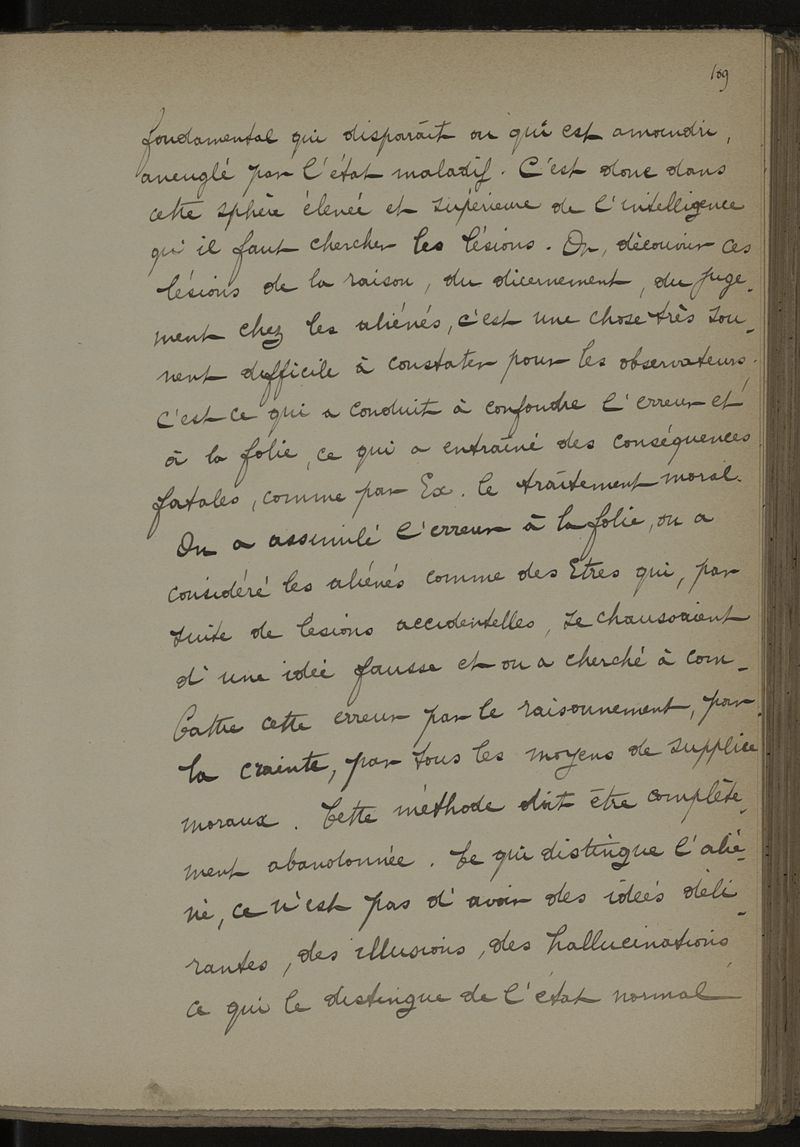 109
fondamental qui disparaît ou qui est amoindri,
aveuglé par l'état maladif. C'est donc dans
cette sphère élevée et supérieure de l'intelligence
qu'il faut chercher les lésions. Or, découvrir ces
lésions de la raison, du dicernement, du juge-
ment chez les aliénés, c'est une chose très sou-
vent difficile à constater pour les observateurs.
C'est ce qui a conduit à confondre l'erreur et
à la folie, ce qui a entraîné des conséquences
fatales, comme par Ex. le traitement moral.
On a assimilé l'erreur à la folie, on a
considéré les aliénés comme des Etres qui, par
suite de lésions accidentelles, se chaussaient
d'une idée fausse et on a cherché à com-
battre cette erreur par le raisonnement, par
la crainte, par tous les moyens de supplice
moraux. Cette méthode doit être complète-
ment abandonnée. Ce qui distingue l'alié-
né, ce n'est pas d'avoir des idées déli-
rantes, des illusions, des hallucinations,
ce qui le distingue de l'état normal